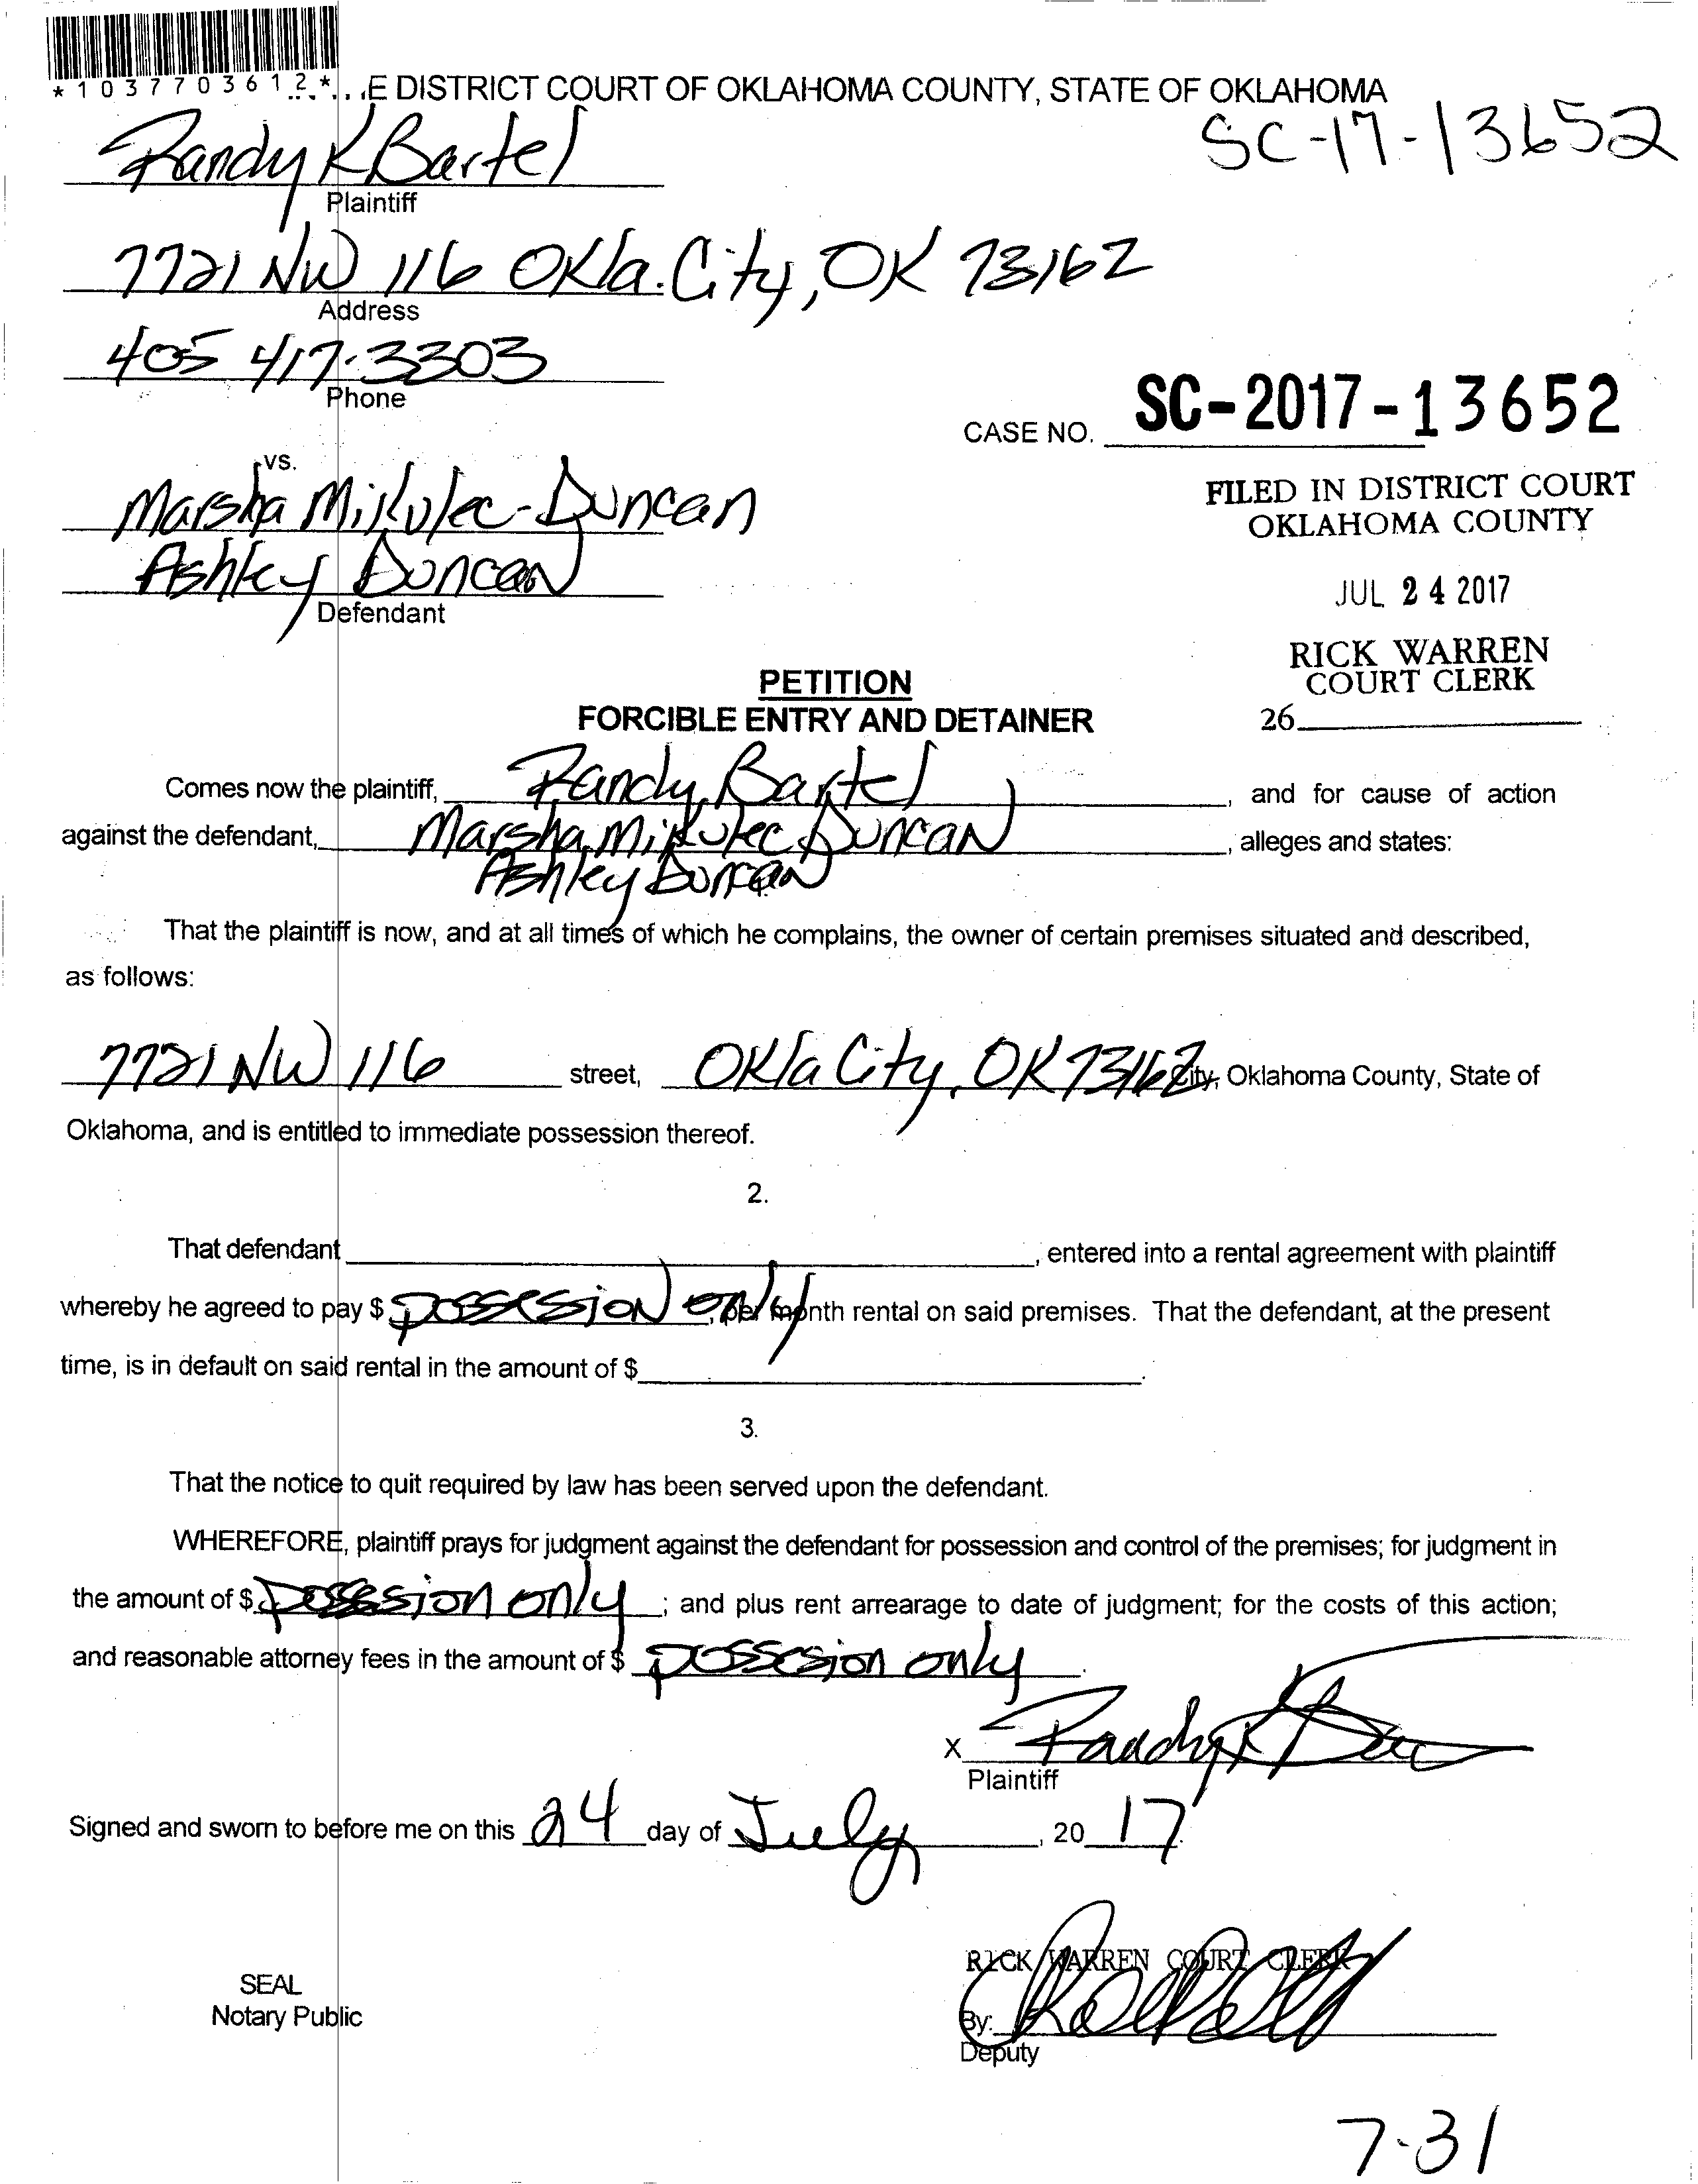 *1037703612*
E DISTRICT COURT OF OKLAHOMA COUNTY, STATE OF OKLAHOMA
SC-17-13652
Randy K Bartel
Plaintiff
7721 NW 116 Okla. City, OK 73162
Address
405 417-3303
Phone
CASE NO. SC-2017-13652
vs.
Marsha Mikulec-Duncan
Ashley Duncan
Defendant
FILED IN DISTRICT COURT
OKLAHOMA COUNTY
JUL 24 2017
RICK WARREN
COURT CLERK
26
PETITION
FORCIBLE ENTRY AND DETAINER
Comes now the plaintiff, Randy Bartel, and for cause of action
against the defendant, Marsha Mikulec Duncan, alleges and states:
Ashley Duncan
That the plaintiff is now, and at all times of which he complains, the owner of certain premises situated and described,
as follows:
7721 NW 116 street, Okla City, OK 73162 City, Oklahoma County, State of
Oklahoma, and is entitled to immediate possession thereof.
2.
That defendant, entered into a rental agreement with plaintiff
whereby he agreed to pay $ possession only, per month rental on said premises. That the defendant, at the present
time, is in default on said rental in the amount of $ .
3.
That the notice to quit required by law has been served upon the defendant.
WHEREFORE, plaintiff prays for judgment against the defendant for possession and control of the premises; for judgment in
the amount of $ possession only; and plus rent arrearage to date of judgment; for the costs of this action;
and reasonable attorney fees in the amount of $ possesion only.
X Randy K
Plaintiff
Signed and sworn to before me on this 24 day of July, 2017.
RICK WARREN COURT CLERK
SEAL
Notary Public
By:
Deputy
7-31